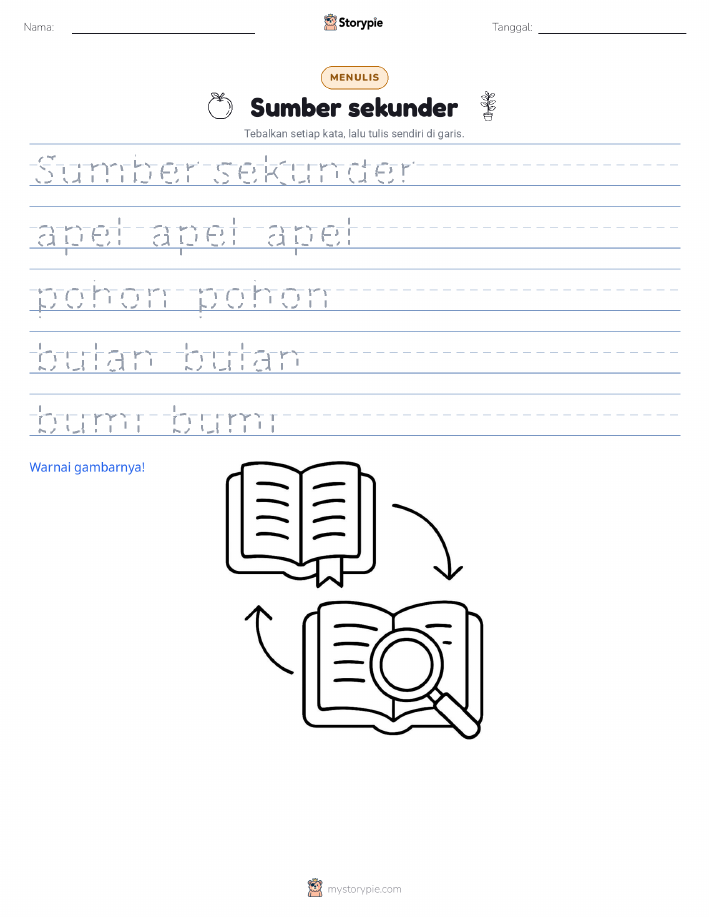 Nama:
Storypie
Tanggal:
MENULIS
Sumber sekunder
Tebalkan setiap kata, lalu tulis sendiri di garis.
Sumber sekunder
apel apel apel
pohon pohon
bulan bulan
bumi bumi
Warnai gambarnya!
mystorypie.com